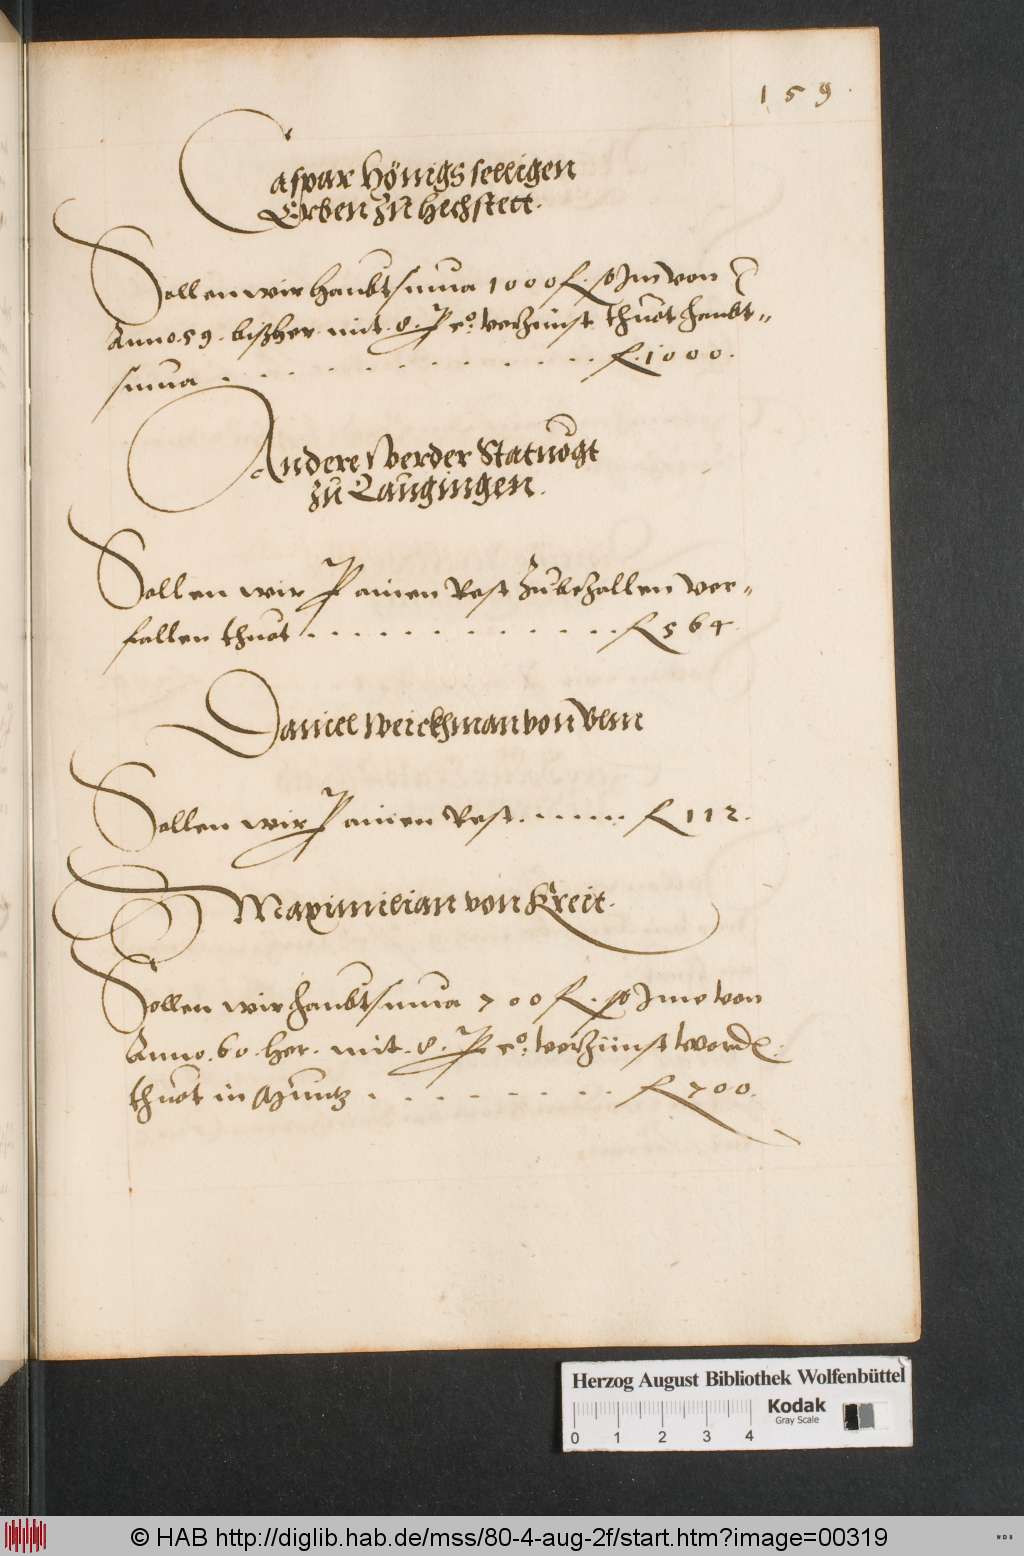 159.
Caspar Hönigs selligen
Erben zu Hechstett.
Sollen wir haubtsuma 1000 fl. so Im von
Anno .59. bißher mit .8. P co. verzinst thuot haubt„
suma . . . . . . . . . . fl. 1000.
Andere Werder Statuogt
zu Laugingen.
Sollen wir P ainen Rest zubezallen ver„
fallen thuot . . . . . . . . . . . . . fl 564.
Daniel Weickhman von Ulm
Sollen wir P ainen Rest . . . . . . fl 112.
Maximilian von Kreit.
Sollen wir haubtsuma 700 fl. so Ime von
Anno .60. her. mit .8. P co. verzinst word
thuot in Müntz . . . . . . . . fl 700.
Herzog August Bibliothek Wolfenbüttel
Kodak
Gray Scale
0 1 2 3 4
© HAB http://diglib.hab.de/mss/80-4-aug-2f/start.htm?image=00319